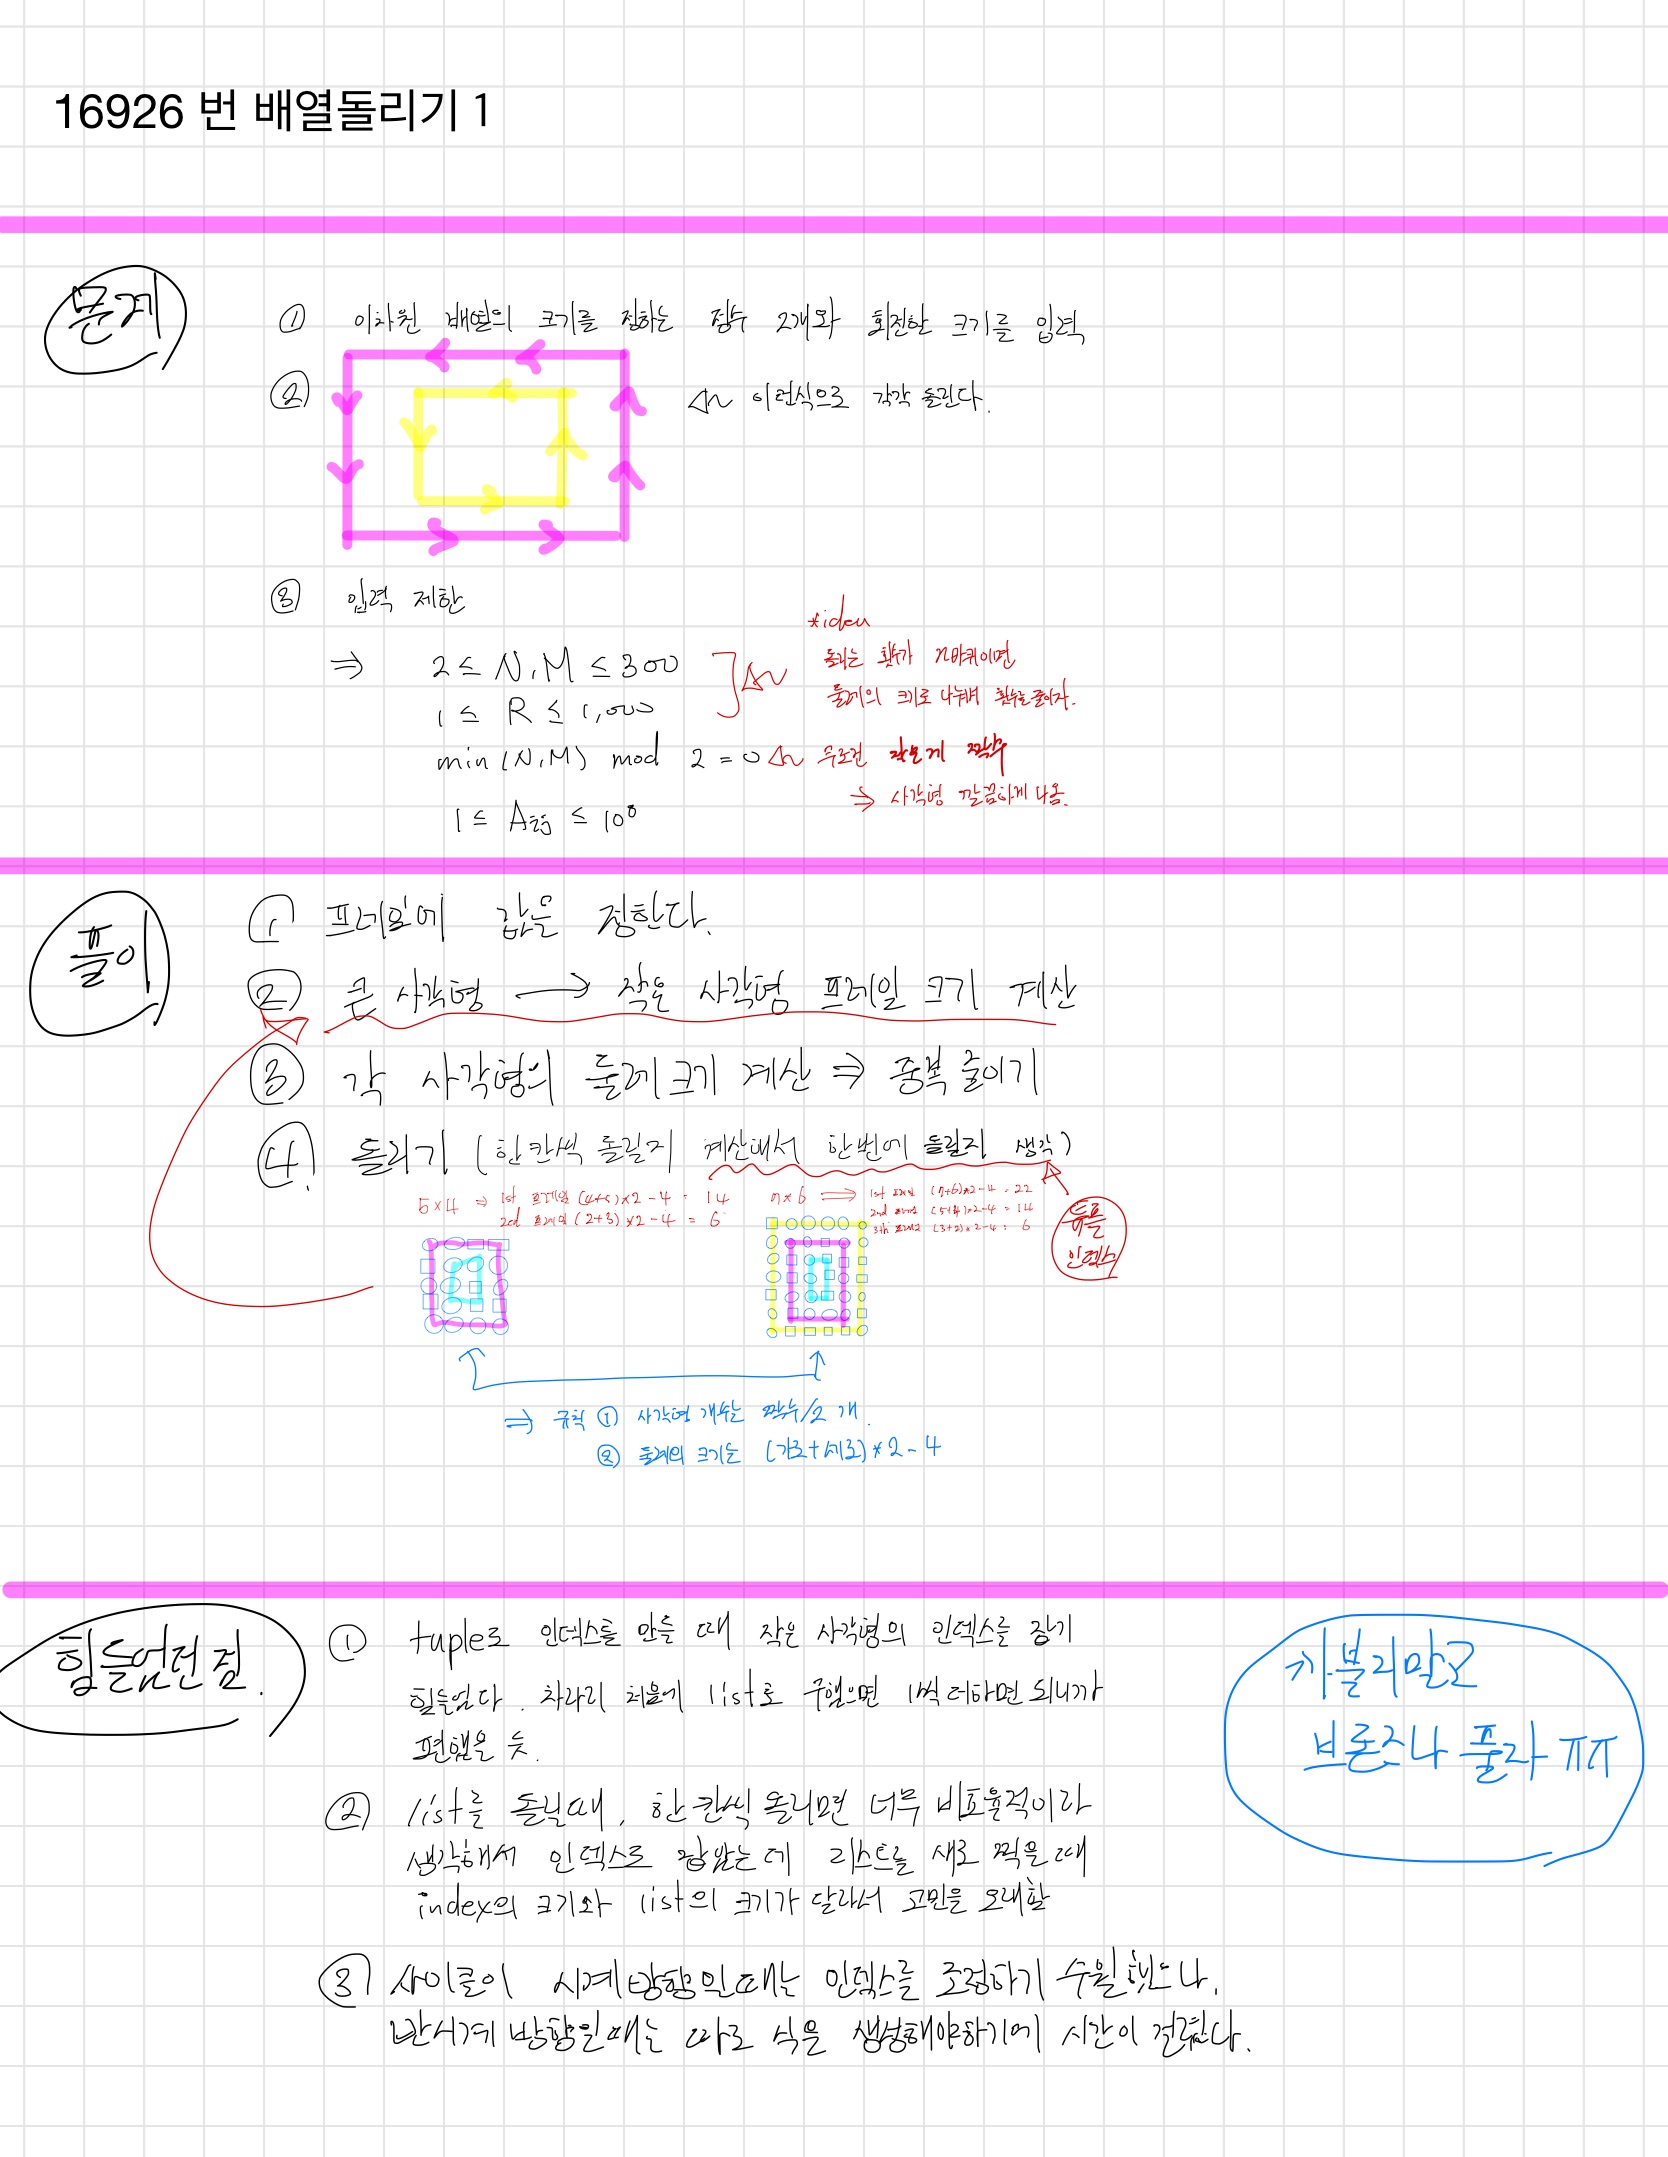 16926 번 배열돌리기 1
문제
① 이차원 배열의 크기를 정하는 정수 2개와 회전한 크기를 입력
② 이런식으로 각각 돌린다.
③ 입력 제한
⇒ 2 ≤ N, M ≤ 300
1 ≤ R ≤ 1,000
min(N,M) mod 2 = 0
1 ≤ Aij ≤ 10⁸
*idea
돌리는 횟수가 n바퀴이면
둘레의 크기로 나눠서 횟수를 줄이자.
무조건 작은게 짝수
⇒ 사각형 깔끔하게 나옴.
풀이
① 프레임에 값을 정한다.
② 큰 사각형 → 작은 사각형 프레임 크기 계산
③ 각 사각형의 둘레 크기 계산 ⇒ 중복 줄이기
④ 돌리기 (한칸씩 돌릴지 계산해서 한번에 돌릴지 생각)
튜플
인덱스
5×4 ⇒ 1st 프레임 (4+5)×2-4 = 14
2cd 프레임 (2+3)×2-4 = 6
7×6 ⇒ 1st 프레임 (7+6)×2-4 = 22
2nd 프레임 (5+4)×2-4 = 14
3th 프레임 (3+2)×2-4 = 6
⇒ 규칙 ① 사각형 개수는 짝수/2 개.
② 둘레의 크기는 (가로+세로)*2-4
힘들었던 점.
① tuple로 인덱스를 만들 때 작은 사각형의 인덱스를 잡기
힘들었다. 차라리 처음에 list로 구했으면 1씩 더하면 되니까
편했을 듯.
② list를 돌릴때, 한칸씩 돌리면 너무 비효율적이라
생각해서 인덱스로 잡았는데 리스트를 새로 찍을 때
index의 크기와 list의 크기가 달라서 고민을 오래함
③ 사이클이 시계방향일때는 인덱스를 조정하기 수월했으나,
반시계 방향일때는 따로 식을 생성해야하기에 시간이 걸렸다.
까불지말고
브론즈나 풀자 ㅠㅠ